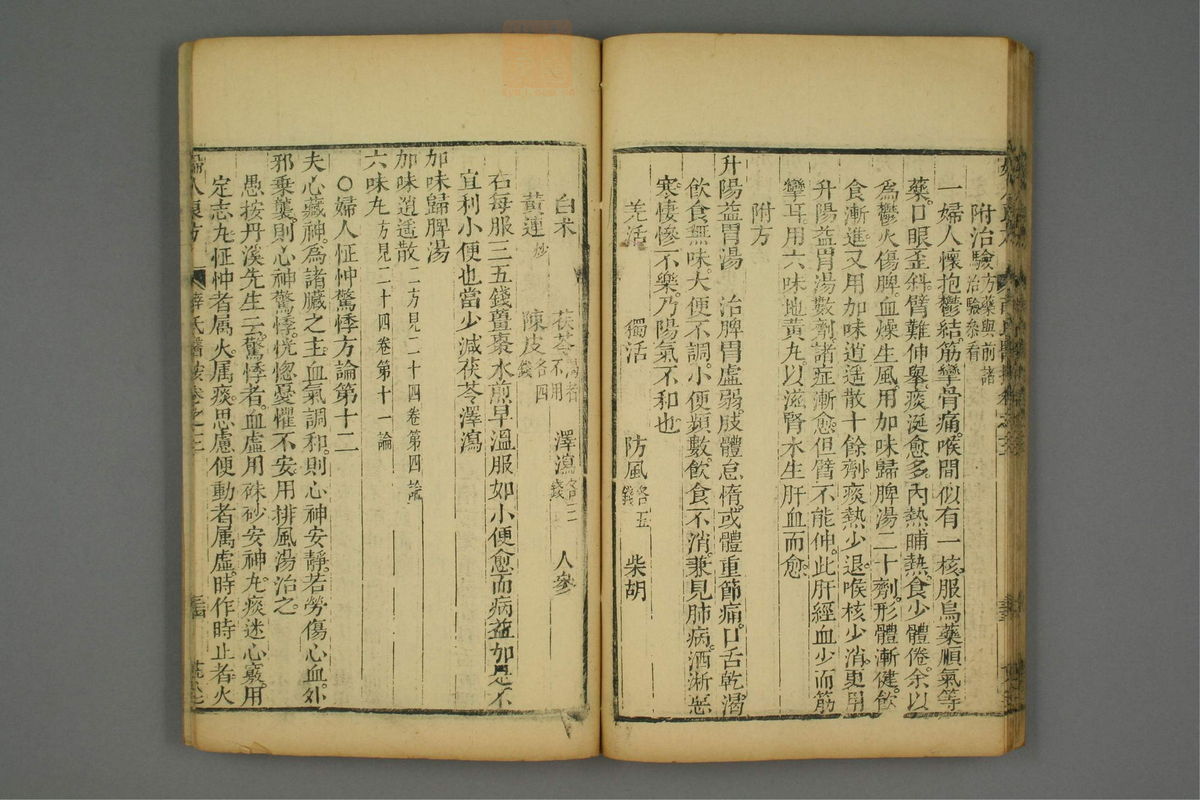 附治驗方藥與前諸治驗參看
一婦人懷抱鬱結筋攣骨痛喉間似有一核服烏藥順氣等
藥口眼歪斜臂難伸舉痰涎愈多內熱晡熱食少體倦余以
為鬱火傷脾血燥生風用加味歸脾湯二十劑形體漸健飲
食漸進又用加味逍遥散十餘劑痰熱少退喉核少消更用
升陽益胃湯數劑諸症漸愈但臂不能伸此肝經血少而筋
攣耳用六味地黃丸以滋腎水生肝血而愈
附方
升陽益胃湯 治脾胃虛弱肢體怠惰或體重節痛口舌乾渴
飲食無味大便不調小便頻數飲食不消兼見肺病洒淅惡
寒悽慘不樂乃陽氣不和也
羌活 獨活 防風各五錢 柴胡
白术 茯苓渴者不用 澤瀉各三錢 人參
黃連炒 陳皮各四錢
右每服三五錢薑棗水煎早溫服如小便愈而病益加是不
宜利小便也當少減茯苓澤瀉
加味歸脾湯
加味逍遥散二方見二十四卷第四論
六味丸方見二十四卷第十一論
○婦人怔忡驚悸方論第十二
夫心藏神為諸臟之主血氣調和則心神安靜若勞傷心血外
邪乘襲則心神驚悸恍惚憂懼不安用排風湯治之
愚按丹溪先生云驚悸者血虛用硃砂安神丸痰迷心竅用
定志丸怔忡者属火属痰思慮便動者属虛時作時止者火
婦人良方 薛氏醫按卷之三